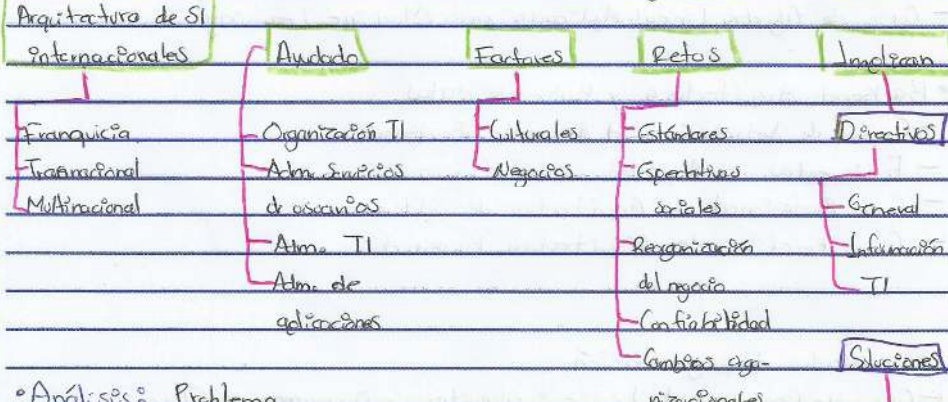 Arquitectura de SI
internacionales
Franquicia
Trasnacional
Multinacional
Ayudado
Organización TI
Adm. Servicios
de usuarios
Adm. TI
Adm. de
aplicaciones
Factores
Culturales
Negocios
Retos
Estándares
Espectativas
sociales
Reorganización
del negocio
Confiabilidad
Cambios orga-
nizacionales
Implican
Directivos
General
Información
TI
Soluciones
• Análisis: Problema